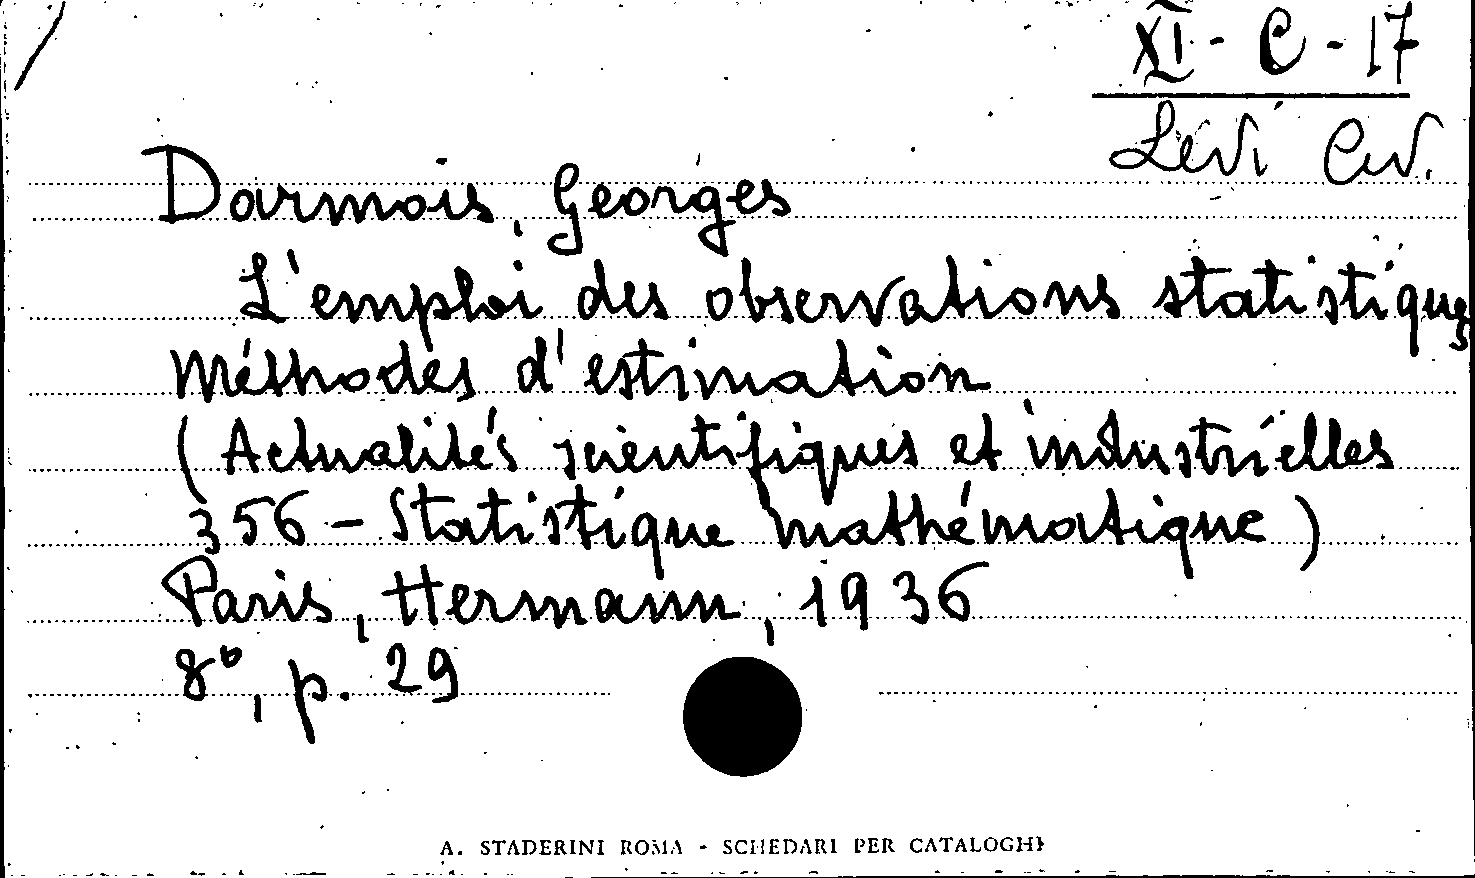 XI - C - 17
Levi Civ.
Darmois, Georges
L'emploi des observations statistiques
Méthodes d'estimation
(Actualités scientifiques et industrielles
356 - Statistique mathématique)
Paris, Hermann, 1936
8°, p. 29
A. STADERINI ROMA - SCHEDARI PER CATALOGHI